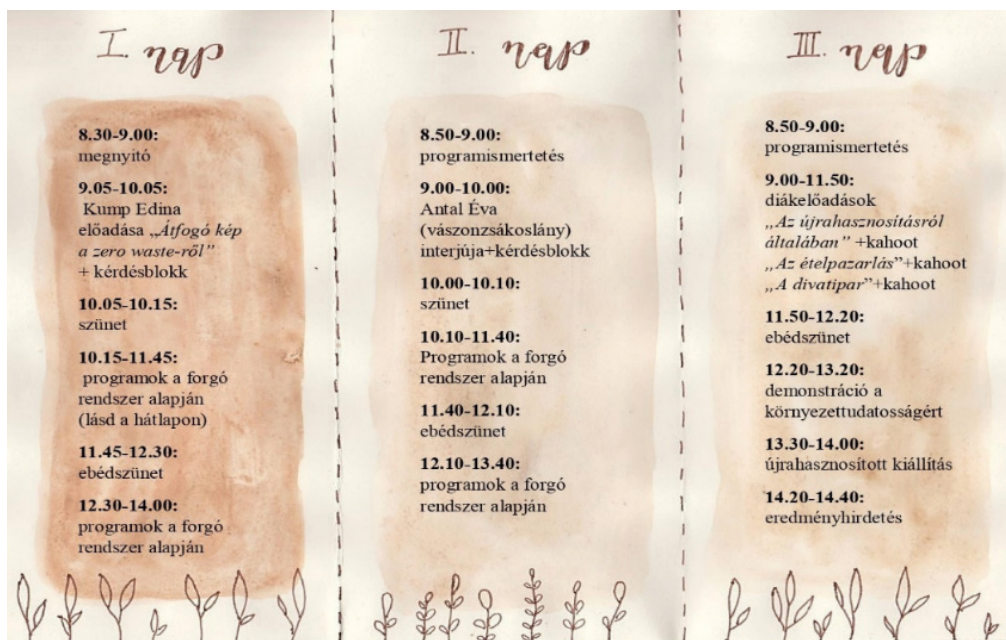 I. nap
8.30-9.00:
megnyitó
9.05-10.05:
Kump Edina
előadása „Átfogó kép
a zero waste-ről”
+ kérdésblokk
10.05-10.15:
szünet
10.15-11.45:
programok a forgó
rendszer alapján
(lásd a hátlapon)
11.45-12.30:
ebédszünet
12.30-14.00:
programok a forgó
rendszer alapján
II. nap
8.50-9.00:
programismertetés
9.00-10.00:
Antal Éva
(vászonzsákoslány)
interjúja+kérdésblokk
10.00-10.10:
szünet
10.10-11.40:
Programok a forgó
rendszer alapján
11.40-12.10:
ebédszünet
12.10-13.40:
programok a forgó
rendszer alapján
III. nap
8.50-9.00:
programismertetés
9.00-11.50:
diákelőadások
„Az újrahasznosításról
általában” +kahoot
„Az ételpazarlás”+kahoot
„A divatipar”+kahoot
11.50-12.20:
ebédszünet
12.20-13.20:
demonstráció a
környezettudatosságért
13.30-14.00:
újrahasznosított kiállítás
14.20-14.40:
eredményhirdetés